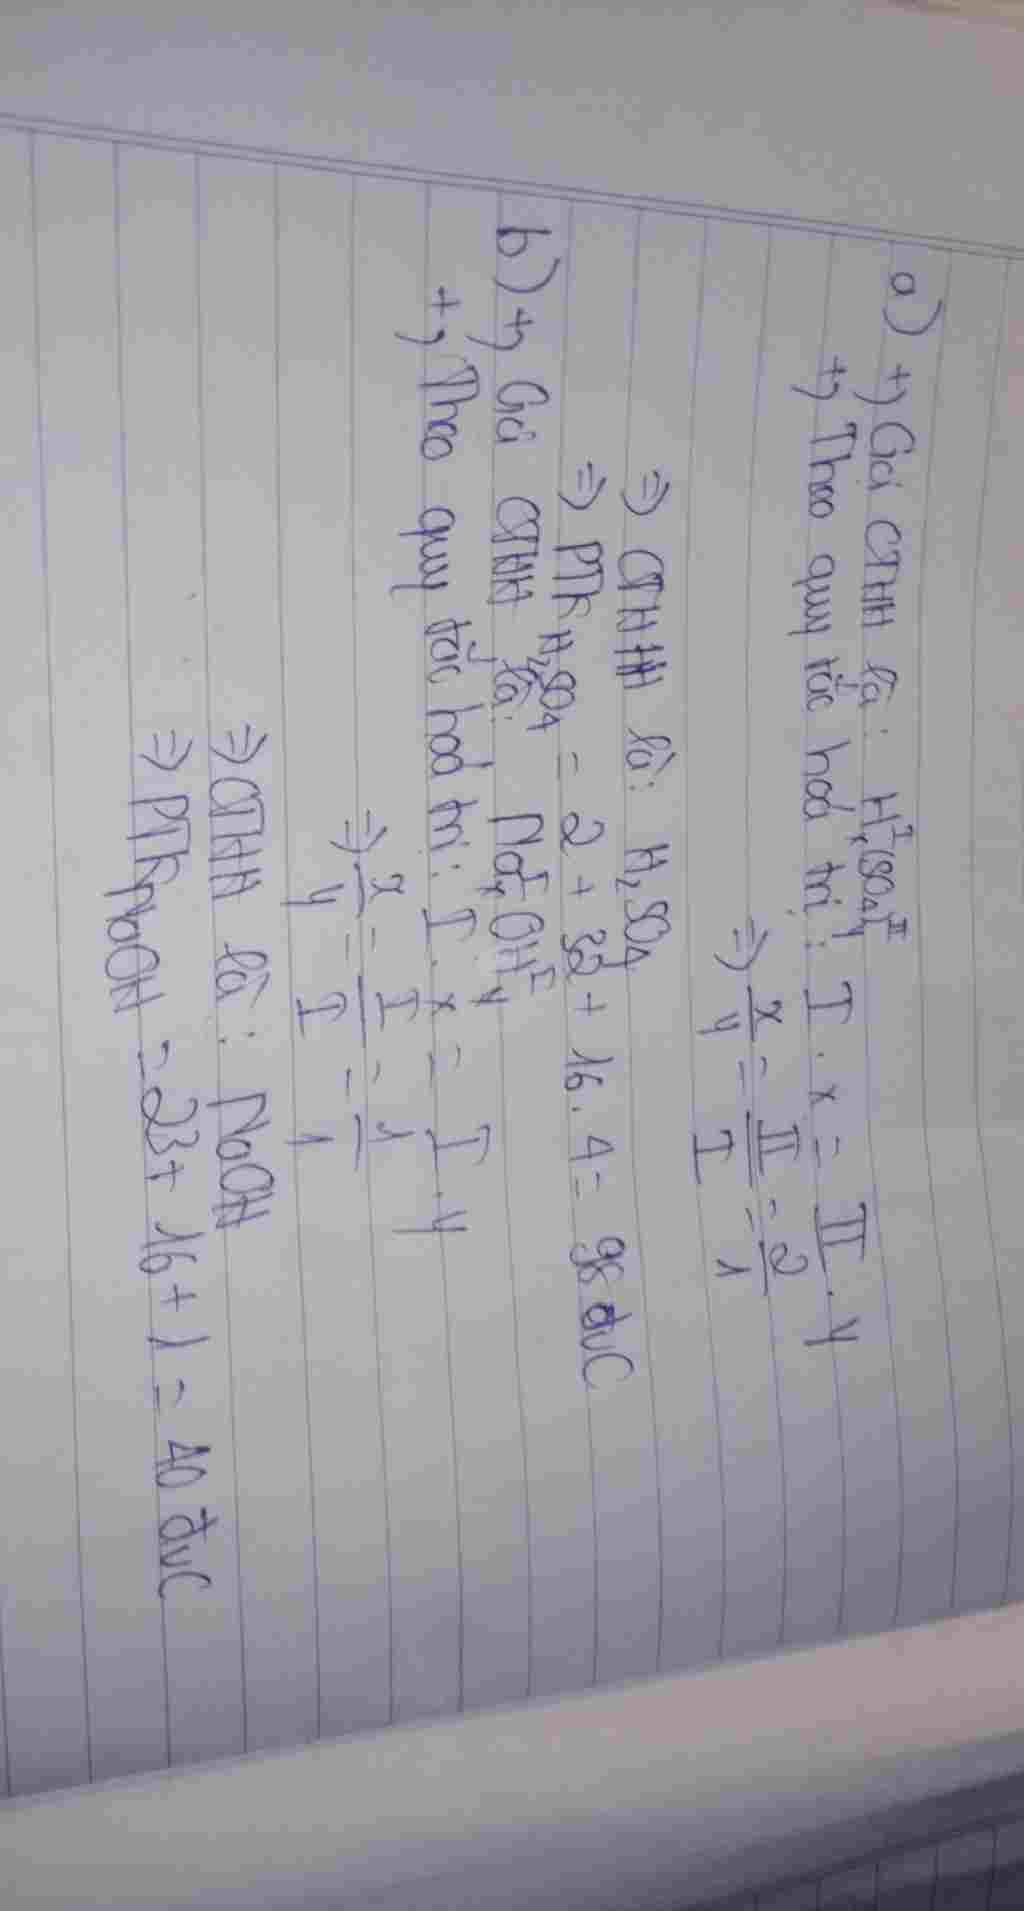 a) +, Gọi CTHH là: Hₓᴵ(SO₄)ᵧᴵᴵ
+, Theo quy tắc hoá trị: I . x = II . y
=> x/y = II/I = 2/1
=> CTHH là: H₂SO₄
=> PTK H₂SO₄ = 2 + 32 + 16 . 4 = 98 đvC
b) +, Gọi CTHH là: NaₓᴵOHᵧᴵ
+, Theo quy tắc hoá trị: I . x = I . y
=> x/y = I/I = 1/1
=> CTHH là: NaOH
=> PTK NaOH = 23 + 16 + 1 = 40 đvC